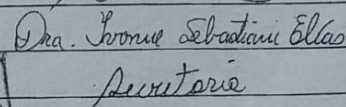 Dra. Ivonne Sebastiani Elías
Secretaria